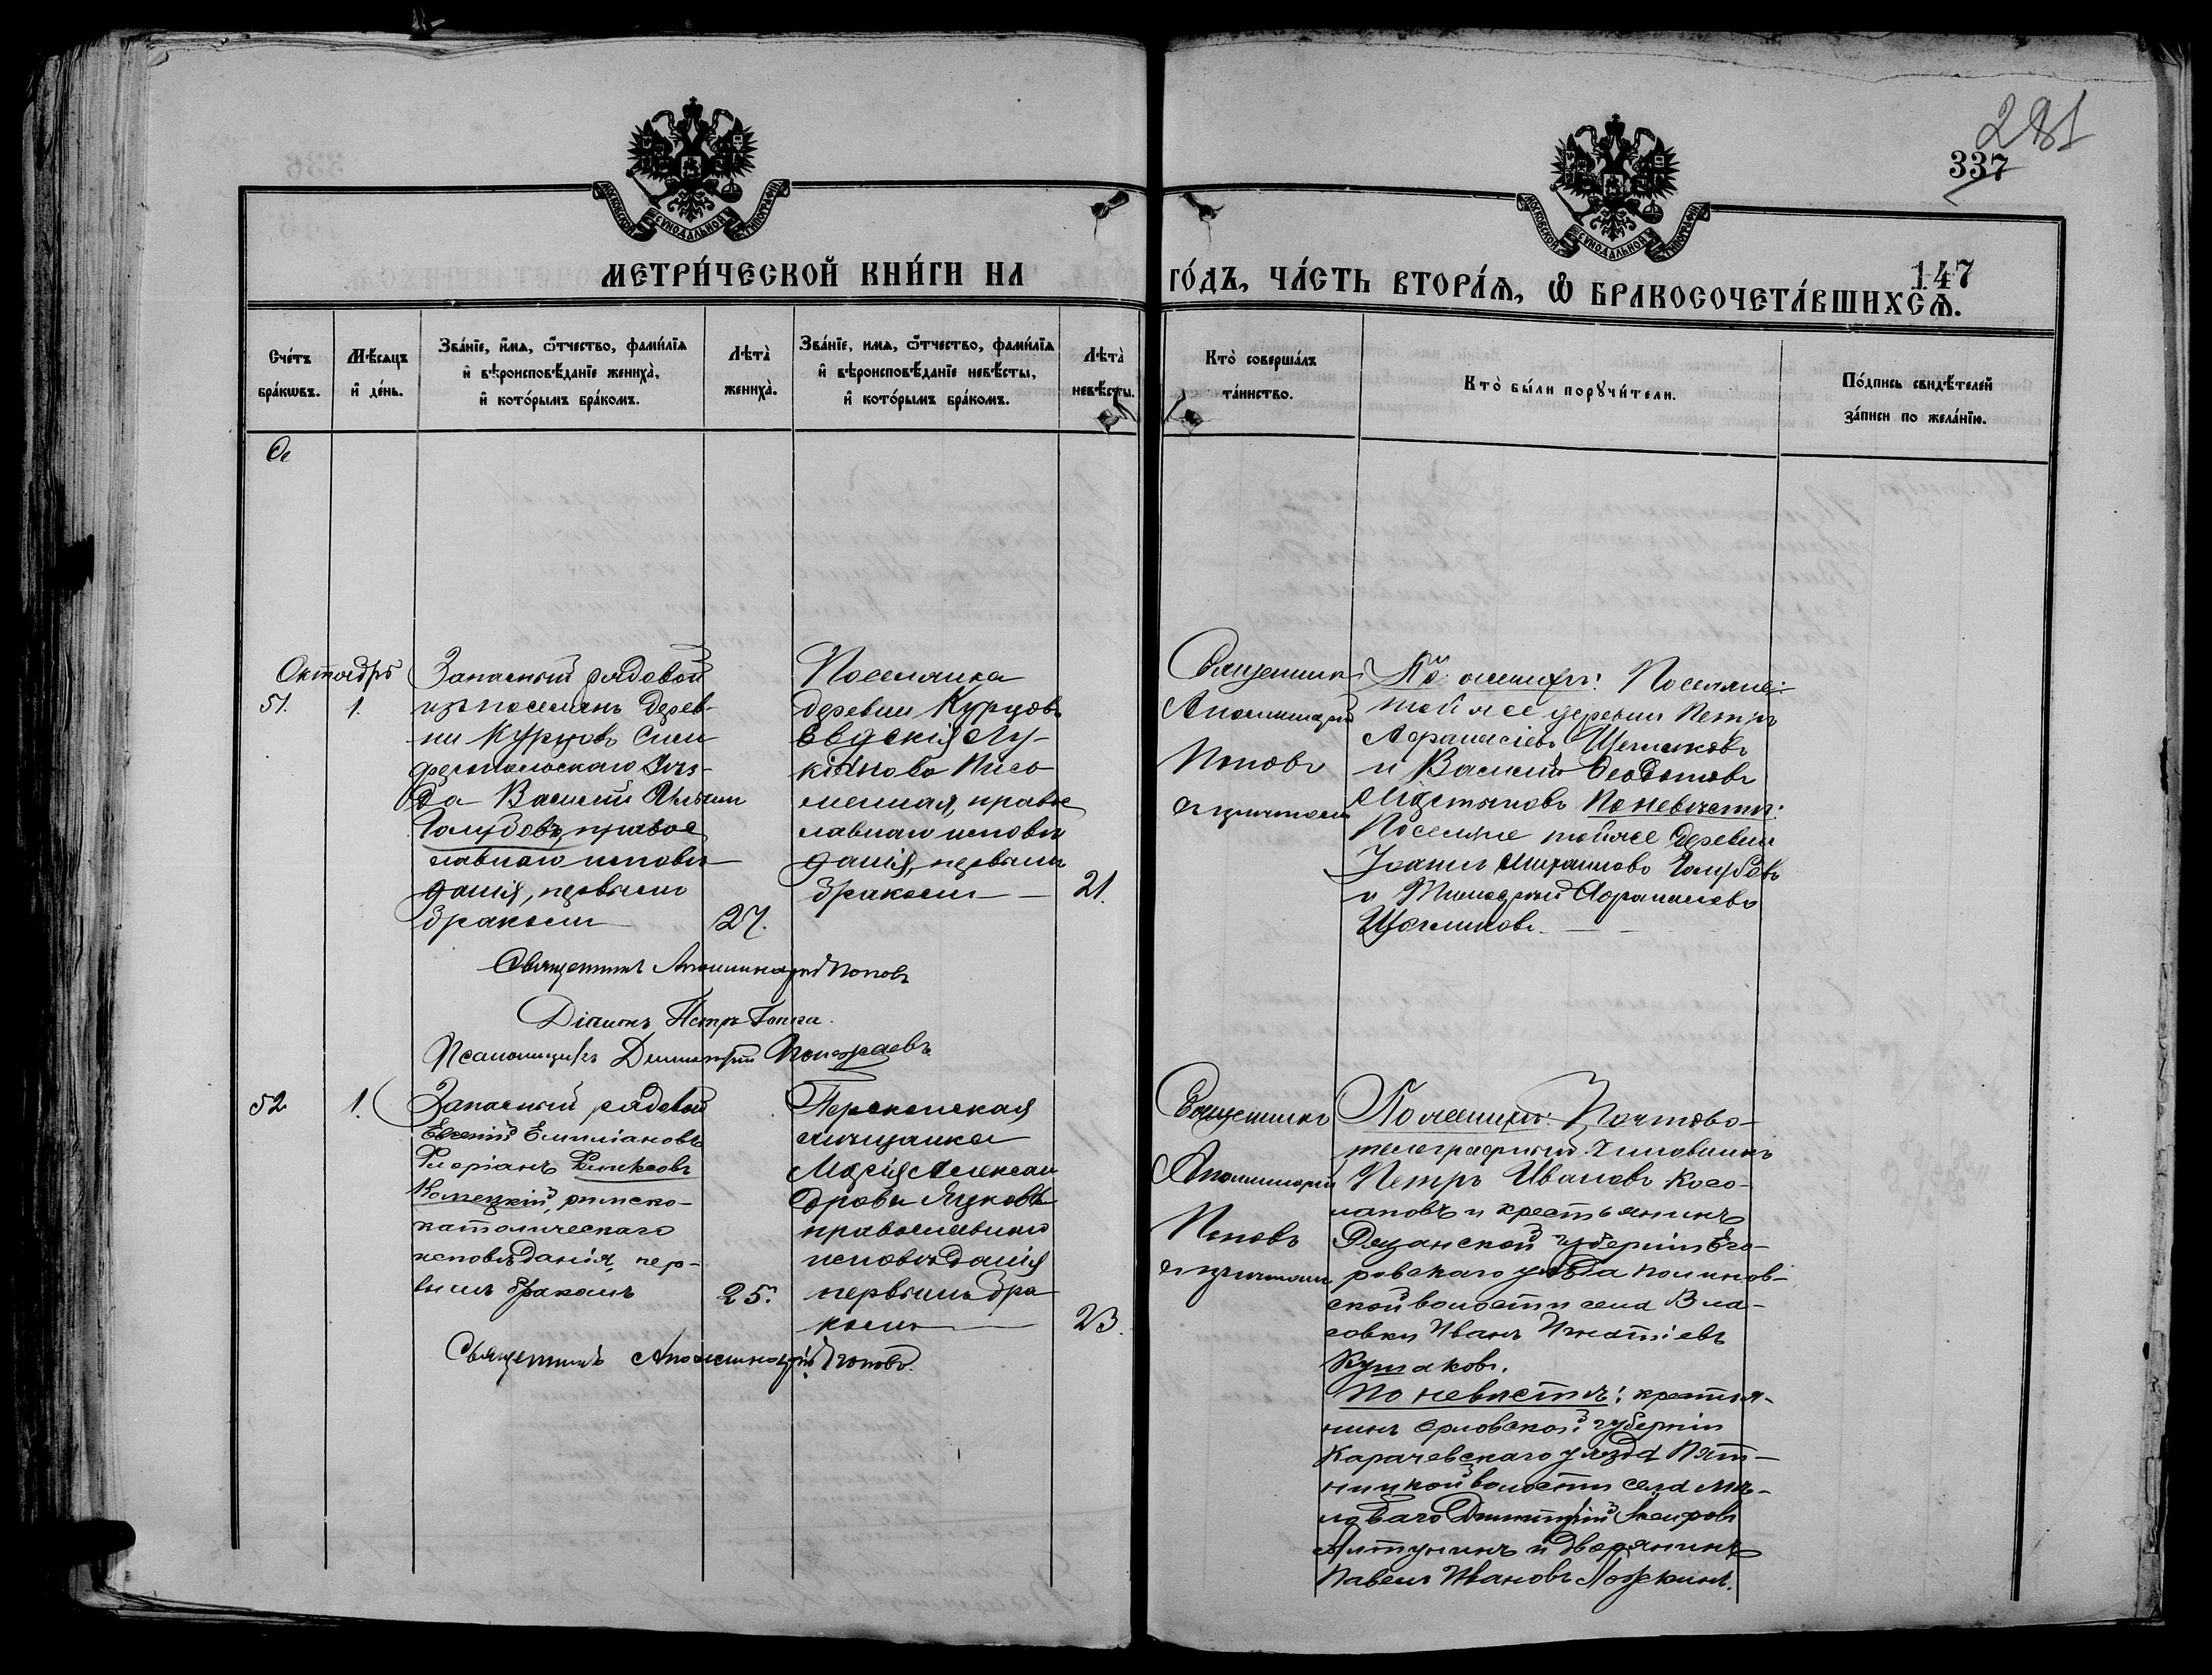 281
337
147
МОСКОВСКОЙ СѴНОДАЛЬНОЙ ТИПОГРАФІИ
МОСКОВСКОЙ СѴНОДАЛЬНОЙ ТИПОГРАФІИ
МЕТРИ́ЧЕСКОЙ КНИ́ГИ НА ГО́ДЪ, ЧА́СТЬ ВТОРА́Ѧ, Ѿ БРАКОСОЧЕТА́ВШИХСѦ.
Сче́тъ
бра́кѡвъ.
Мѣ́сѧцъ
и҆ де́нь.
Зва́нїе, и҆́мѧ, ѻ҆́тчество, фами́лїѧ
и҆ вѣроисповѣ́данїе жениха̀,
и҆ кото́рымъ бра́комъ.
Лѣта̀
жениха̀.
Зва́нїе, имѧ, ѻ҆́тчество, фами́лїѧ
и҆ вѣроисповѣ́данїе невѣ́сты,
и҆ кото́рымъ бра́комъ.
Лѣта̀
невѣ́сты.
Кто̀ соверша́лъ
та́инство.
Кто̀ бы́ли порꙋчи́тели.
По́дпись свидѣ́телей
за́писи по жела́нїю.
Октябрь
51.
1.
Запасный рядовой
изъ поселянъ дерев-
ни Курцовъ Сим
феропольскаго Уѣз-
да Василий
Голубовъ, правос
лавнаго исповѣ-
данія, первымъ
бракомъ
27.
Поселянка
деревни Курцовъ
Евдокія Лу-
кіянова Пись
менная, правос
лавнаго исповѣ
данія, первымъ
бракомъ
21.
Священникъ
Аполлинарій
Поповъ
съ причтомъ
По женихѣ: Поселяне
той же деревни Петръ
Афанасіевъ Щегликовъ
и Василій Феодотовъ
По невѣстѣ:
Поселяне той же деревни
Іоаннъ Голубовъ
и Тимофей Афанасіевъ
Щегликовъ.
Священникъ Аполлинарій Поповъ
Діаконъ Петръ
Псаломщикъ Димитрій
52
1.
Запасный рядовой
Евгеній Емиліановъ
Флоріанъ Феликсовъ
римско-
католическаго
исповѣданія, пер-
вымъ бракомъ
25.
Перекопская
мѣщанка
Марія Алексан
дрова Языкова
православнаго
исповѣданія
первымъ бра
комъ
23.
Священникъ
Аполлинарій
Поповъ
съ причтомъ
По женихѣ: Почтово-
телеграфный чиновникъ
Петръ Ивановъ Косо-
лаповъ и крестьянинъ
Рязанской губерніи Его-
ровскаго уѣзда
ской волости села Вла-
совки Иванъ Игнатіевъ
Кушаковъ.
По невѣстѣ: крестья-
нинъ Орловской губерніи
Карачевскаго уѣзда Пят-
ницкой волости села
Димитрій
Алтунинъ и дворянинъ
Павелъ Ивановъ Ложкинъ.
Священникъ Аполлинарій Поповъ.